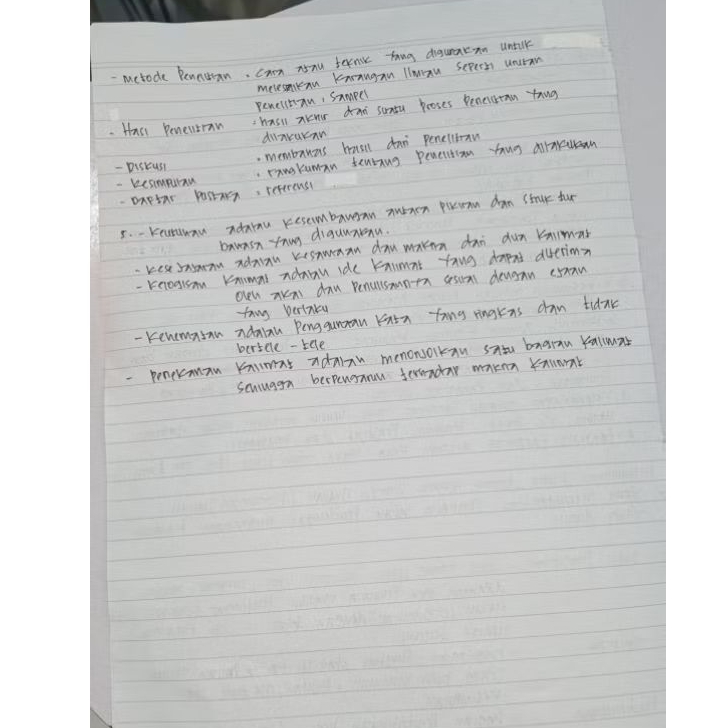 - Metode Penelitian : Cara atau teknik yang digunakan untuk
melesaikan Karangan Ilmiah seperti urutan
Penelitian, Sampel
- Hasi Penelitian : hasil akhir dari suatu proses Penelitian yang
dilakukan
- Diskusi : membahas hasil dari Penelitian
- Kesimpulan : rangkuman tentang Penelitian yang dilakukan
- Daptar Pustaka : referensi
5. - Keutuhan adalah Keseimbangan antara Pikiran dan Struktur
bahasa yang digunakan.
- Kesejajaran adalah kesamaan dan makna dari dua Kalimat
- Kelogisan Kalimat adalah ide Kalimat yang dapat diterima
oleh akal dan Penulisannya sesuai dengan ejaan
yang berlaku
- Kehematan adalah Penggunaan Kata yang ringkas dan tidak
bertele - tele
- Penekanan Kalimat adalah menonjolkan satu bagian Kalimat
sehingga berpengaruh terhadap makna Kalimat